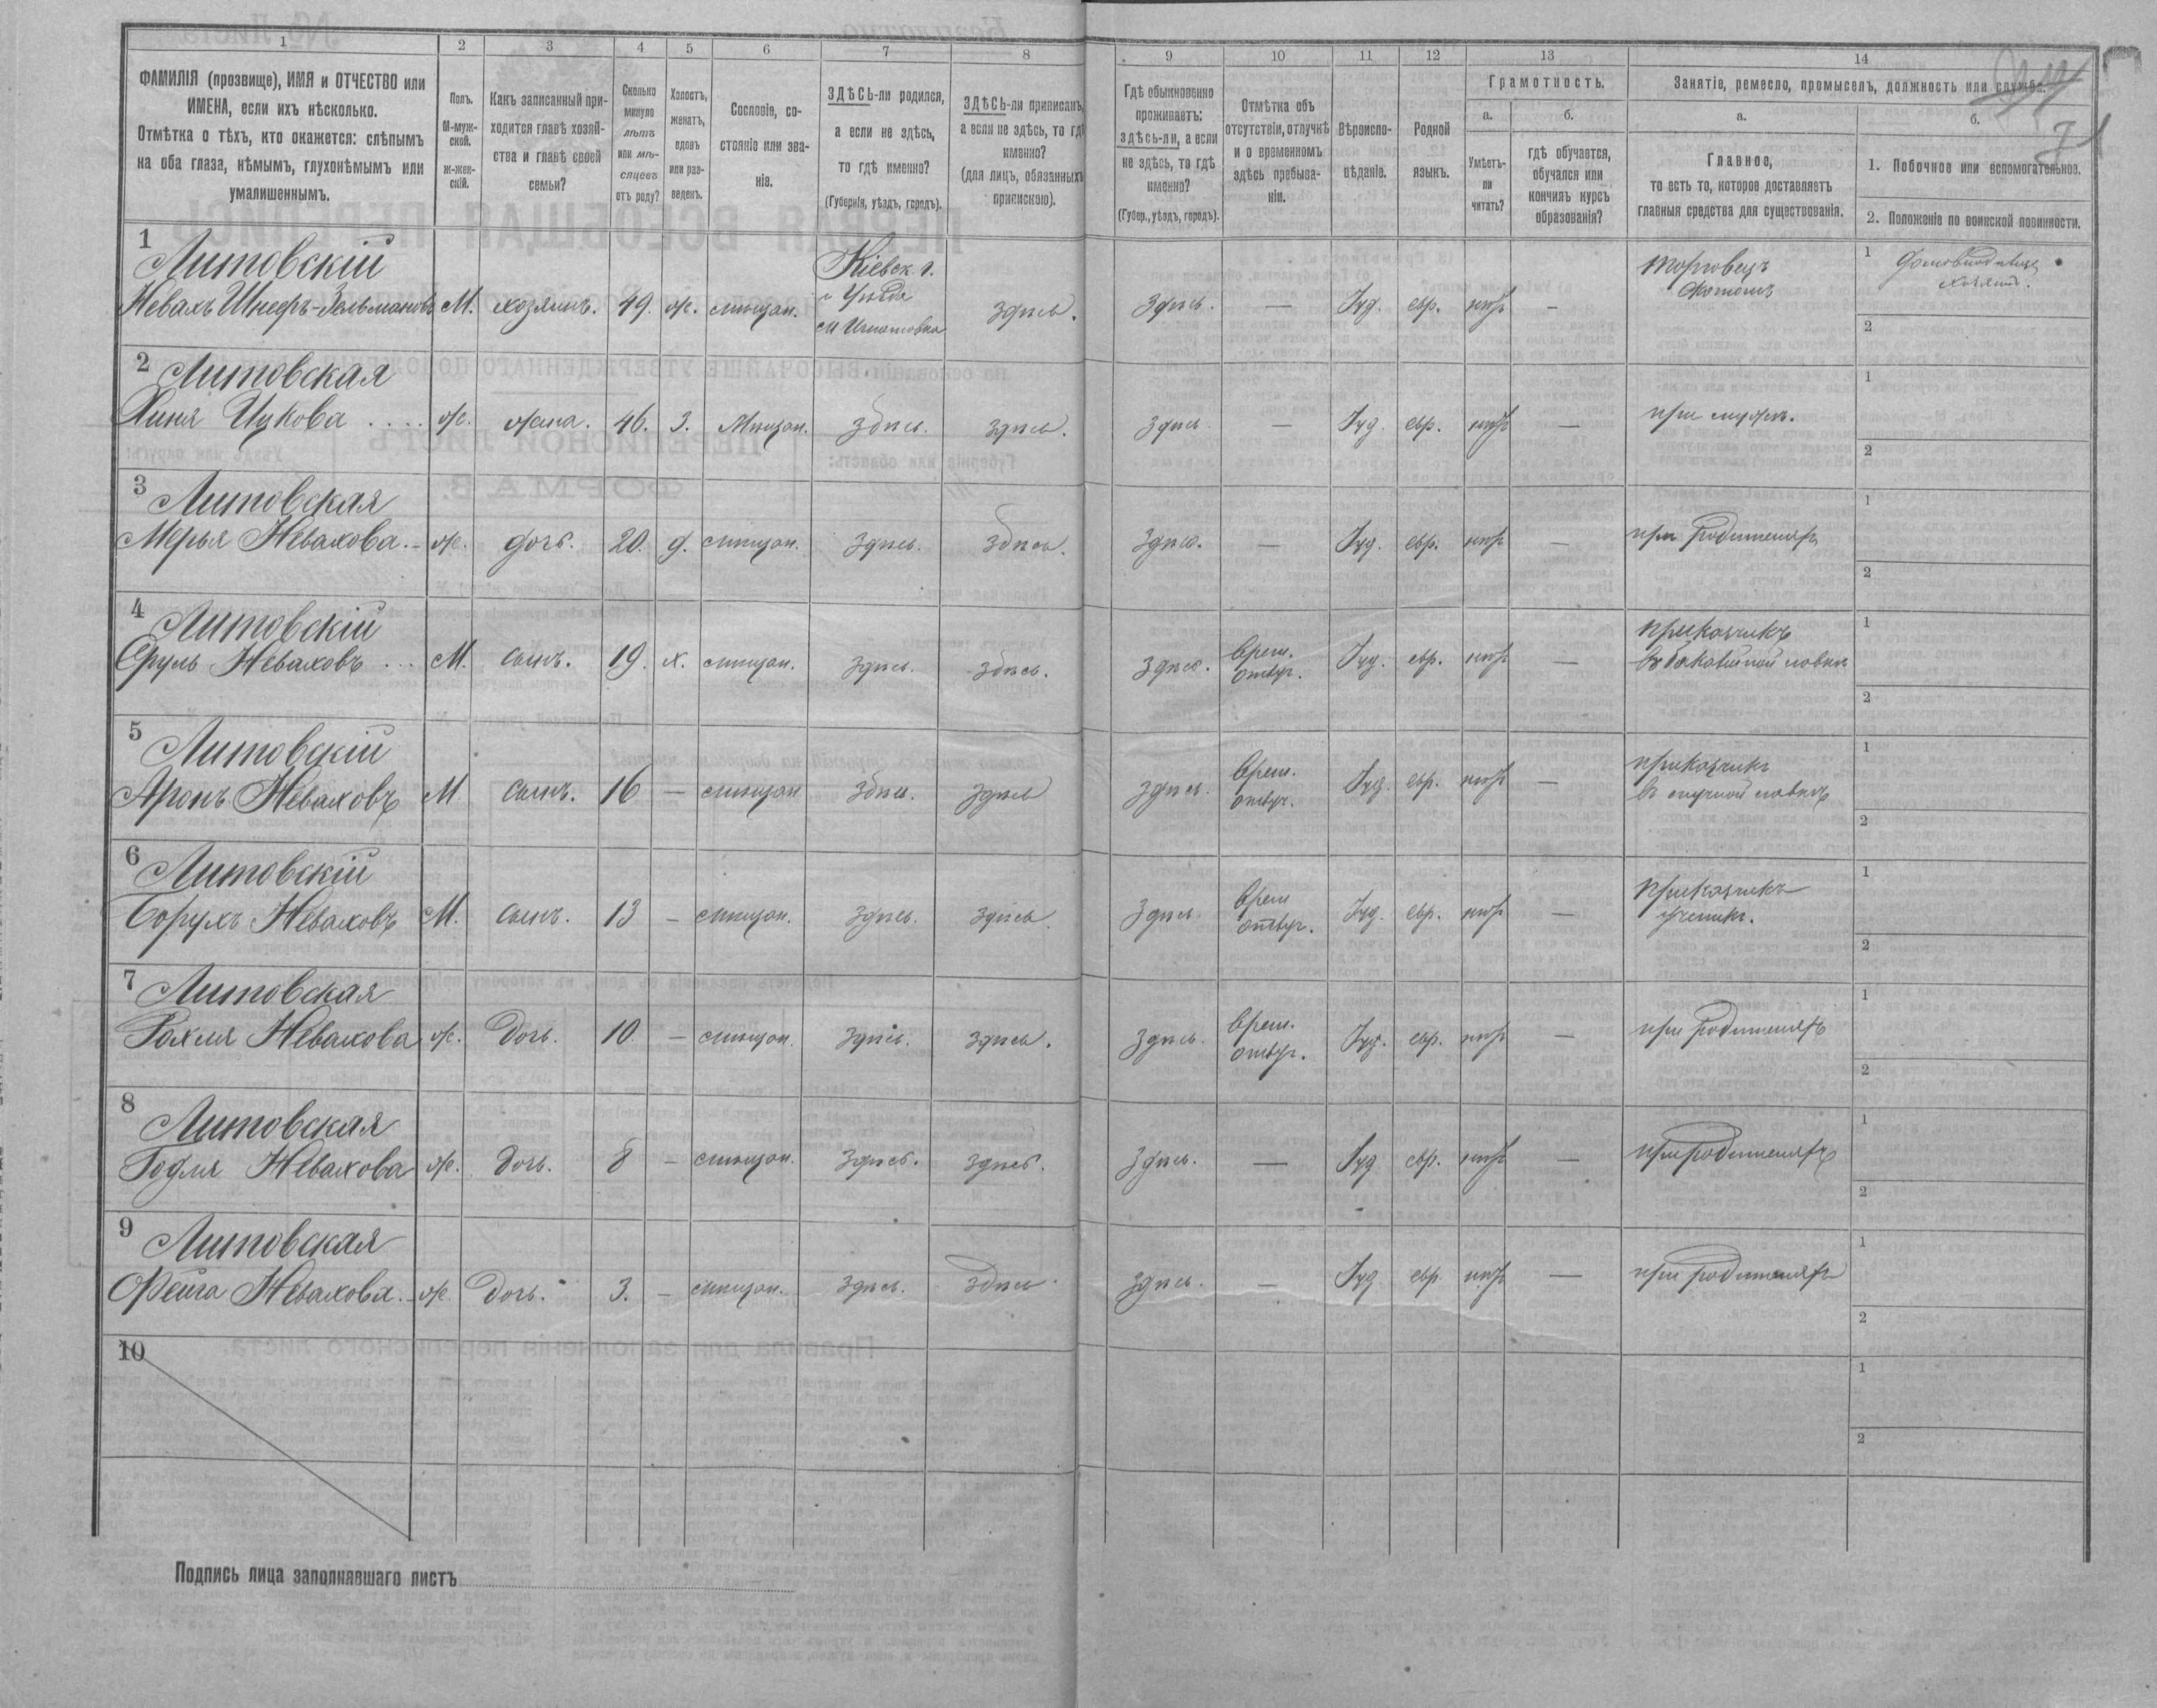 1 2 3 4 5 6 7 8 9 10 11 12 13 14
ФАМИЛІЯ (прозвище), ИМЯ и ОТЧЕСТВО или
ИМЕНА, если ихъ нѣсколько.
Отмѣтка о тѣхъ, кто окажется: слѣпымъ
на оба глаза, нѣмымъ, глухонѣмымъ или
умалишеннымъ.
Полъ.
М-муж-
ской.
ж-жен-
скій.
Какъ записанный при-
ходится главѣ хозяй-
ства и главѣ своей
семьи?
Сколько
минуло
лѣтъ
или мѣ-
сяцевъ
отъ роду?
Холостъ,
женатъ,
вдовъ
или раз-
веденъ.
Сословіе, со-
стояніе или зва-
ніе.
ЗДѢСЬ-ли родился,
а если не здѣсь,
то гдѣ именно?
(Губернія, уѣздъ, городъ).
ЗДѢСЬ-ли приписанъ,
а если не здѣсь, то гдѣ
именно?
(для лицъ, обязанныхъ
припискою).
Гдѣ обыкновенно
проживаетъ:
здѣсь-ли, а если
не здѣсь, то гдѣ
именно?
(Губер., уѣздъ, городъ).
Отмѣтка объ
отсутствіи, отлучкѣ
и о временномъ
здѣсь пребыва-
ніи.
Вѣроиспо-
вѣданіе.
Родной
языкъ.
Грамотность.
а.
Умѣетъ-
ли
читать?
б.
гдѣ обучается,
обучался или
кончилъ курсъ
образованія?
Занятіе, ремесло, промыселъ, должность или служба.
а.
Главное,
то есть то, которое доставляетъ
главныя средства для существованія.
б.
1. Побочное или вспомогательное.
2. Положеніе по воинской повинности.
1 Литовскій Кіевск. г. торговецъ 1
Невахъ Шнеръ-Зельмановъ М. хозяинъ. 49. ж. мѣщан. и Уѣзда м Игнатовка здѣсь. здѣсь. — Іуд. евр. — скотомъ хозяинъ. 2
2 Литовская 1
Хиня Ицкова .... ж. жена. 46. з. Мѣщан. здѣсь. здѣсь. здѣсь — Іуд. евр. — при мужѣ. 2
3 Литовская 1
Мерья Невахова. ж. дочь. 20. д. мѣщан. здѣсь. здѣсь. здѣсь. — Іуд. евр. — при родителяхъ 2
4 Литовскій врем. прикащикъ 1
Сруль Неваховъ ... М. сынъ. 19. х. мѣщан. здѣсь. здѣсь. здѣсь. отлуч. Іуд. евр. — въ бакалѣйной лавкѣ 2
5 Литовскій врем. прикащикъ 1
Аронъ Неваховъ М сынъ. 16 — мѣщан здѣсь. здѣсь здѣсь. отлуч. Іуд. евр. — въ мучной лавкѣ 2
6 Литовскій врем прикащикъ 1
Борухъ Неваховъ М. сынъ. 13 — мѣщан. здѣсь. здѣсь здѣсь отлуч. Іуд. евр. — ученикъ. 2
7 Литовская врем. 1
Рохля Невахова ж. дочь. 10. — мѣщан. здѣсь. здѣсь. здѣсь. отлуч. Іуд. евр. — при родителяхъ 2
8 Литовская 1
Годля Невахова ж. дочь. 8 — мѣщан. здѣсь. здѣсь. здѣсь. — Іуд евр. — при родителяхъ 2
9 Литовская 1
Фейга Невахова. ж. дочь. 3. — мѣщан. здѣсь. здѣсь здѣсь. — Іуд евр. — при родителяхъ 2
10 1
2
Подпись лица заполнявшаго листъ